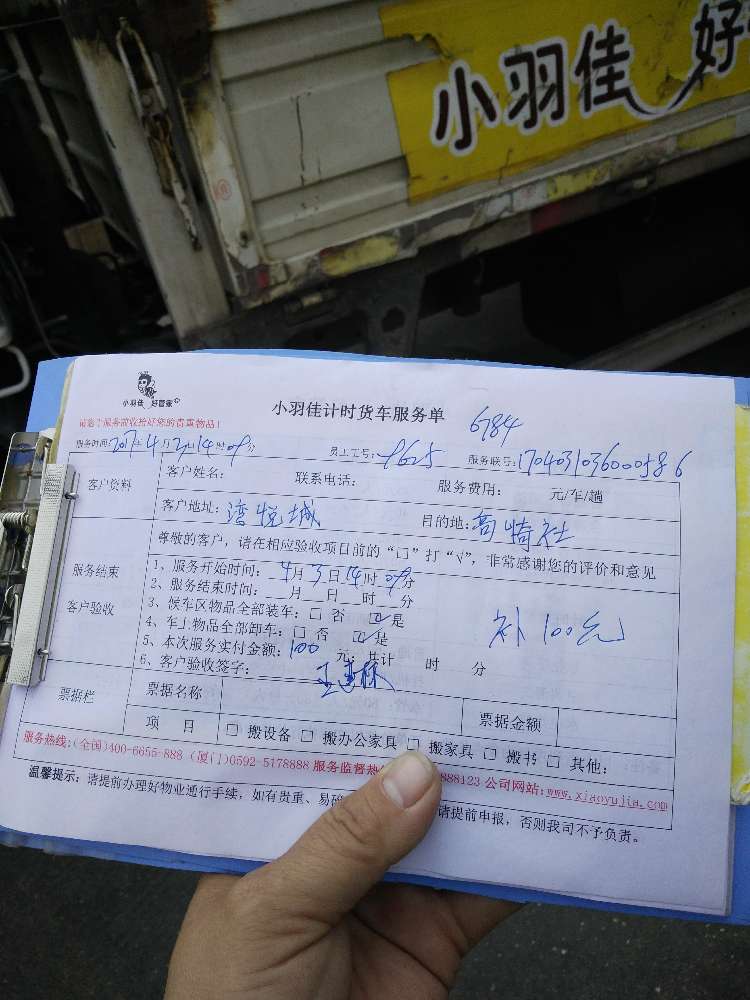 小羽佳 好
小羽佳 好管家
小羽佳计时货车服务单
6784
服务时间:2017年4月3日14时09分 员工工号: 9625 服务联号:1704031036000586
客户资料
客户姓名: 联系电话: 服务费用: 元/车/趟
客户地址: 湾悦城 目的地: 高崎社
服务结束
客户验收
尊敬的客户，请在相应验收项目前的“口”打“√”，非常感谢您的评价和意见
1、服务开始时间: 4月3日14时09分
2、服务结束时间:__月__日__时__分
3、候车区物品全部装车: □ 否 ☑是
4、车上物品全部卸车: □ 否 ☑是
补100元
5、本次服务实付金额: 100 元; 共计 时 分
6、客户验收签字:
票据栏 票据名称 票据金额
项 目 □ 搬设备 □ 搬办公家具 □ 搬家具 □ 搬书 □ 其他:
服务热线:(全国)400-6655-888 (厦门)0592-5178888 服务监督热 888123 公司网站:www.xiaoyujia.com
温馨提示: 请提前办理好物业通行手续，如有贵重、易碎 请提前申报，否则我司不予负责。